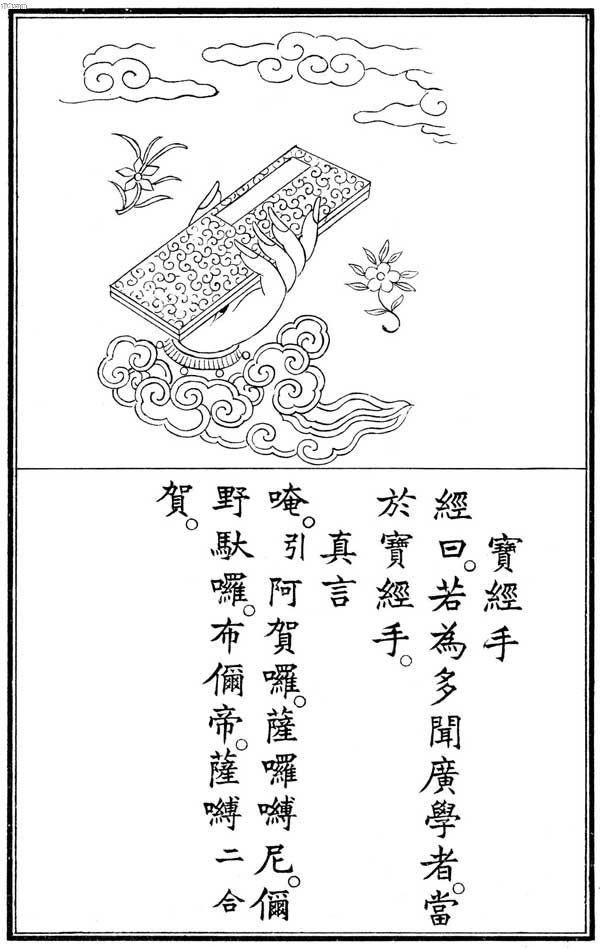 寶經手
經曰。若為多聞廣學者。當
於寶經手。
真言
唵。引阿賀囉。薩囉嚩尼。儞
野馱囉。布儞帝。薩嚩二合
賀。